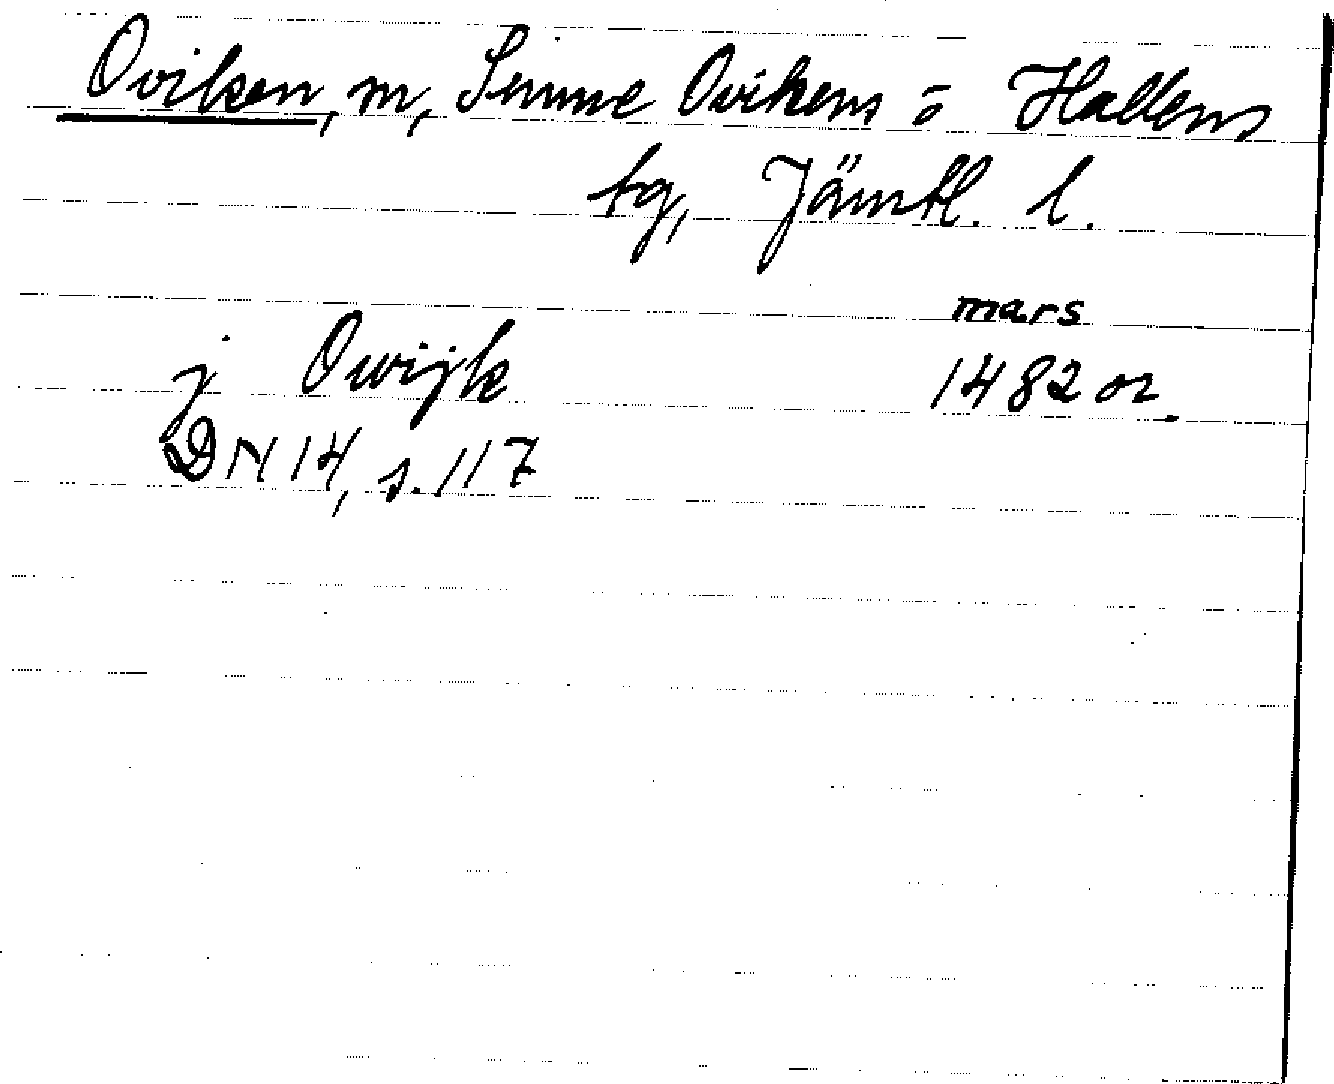 Oviken, m, Sunne Ovikens o Hallens
tg, Jämtl. l.
mars
j Owijk 1482 or.
DN 14, s. 117